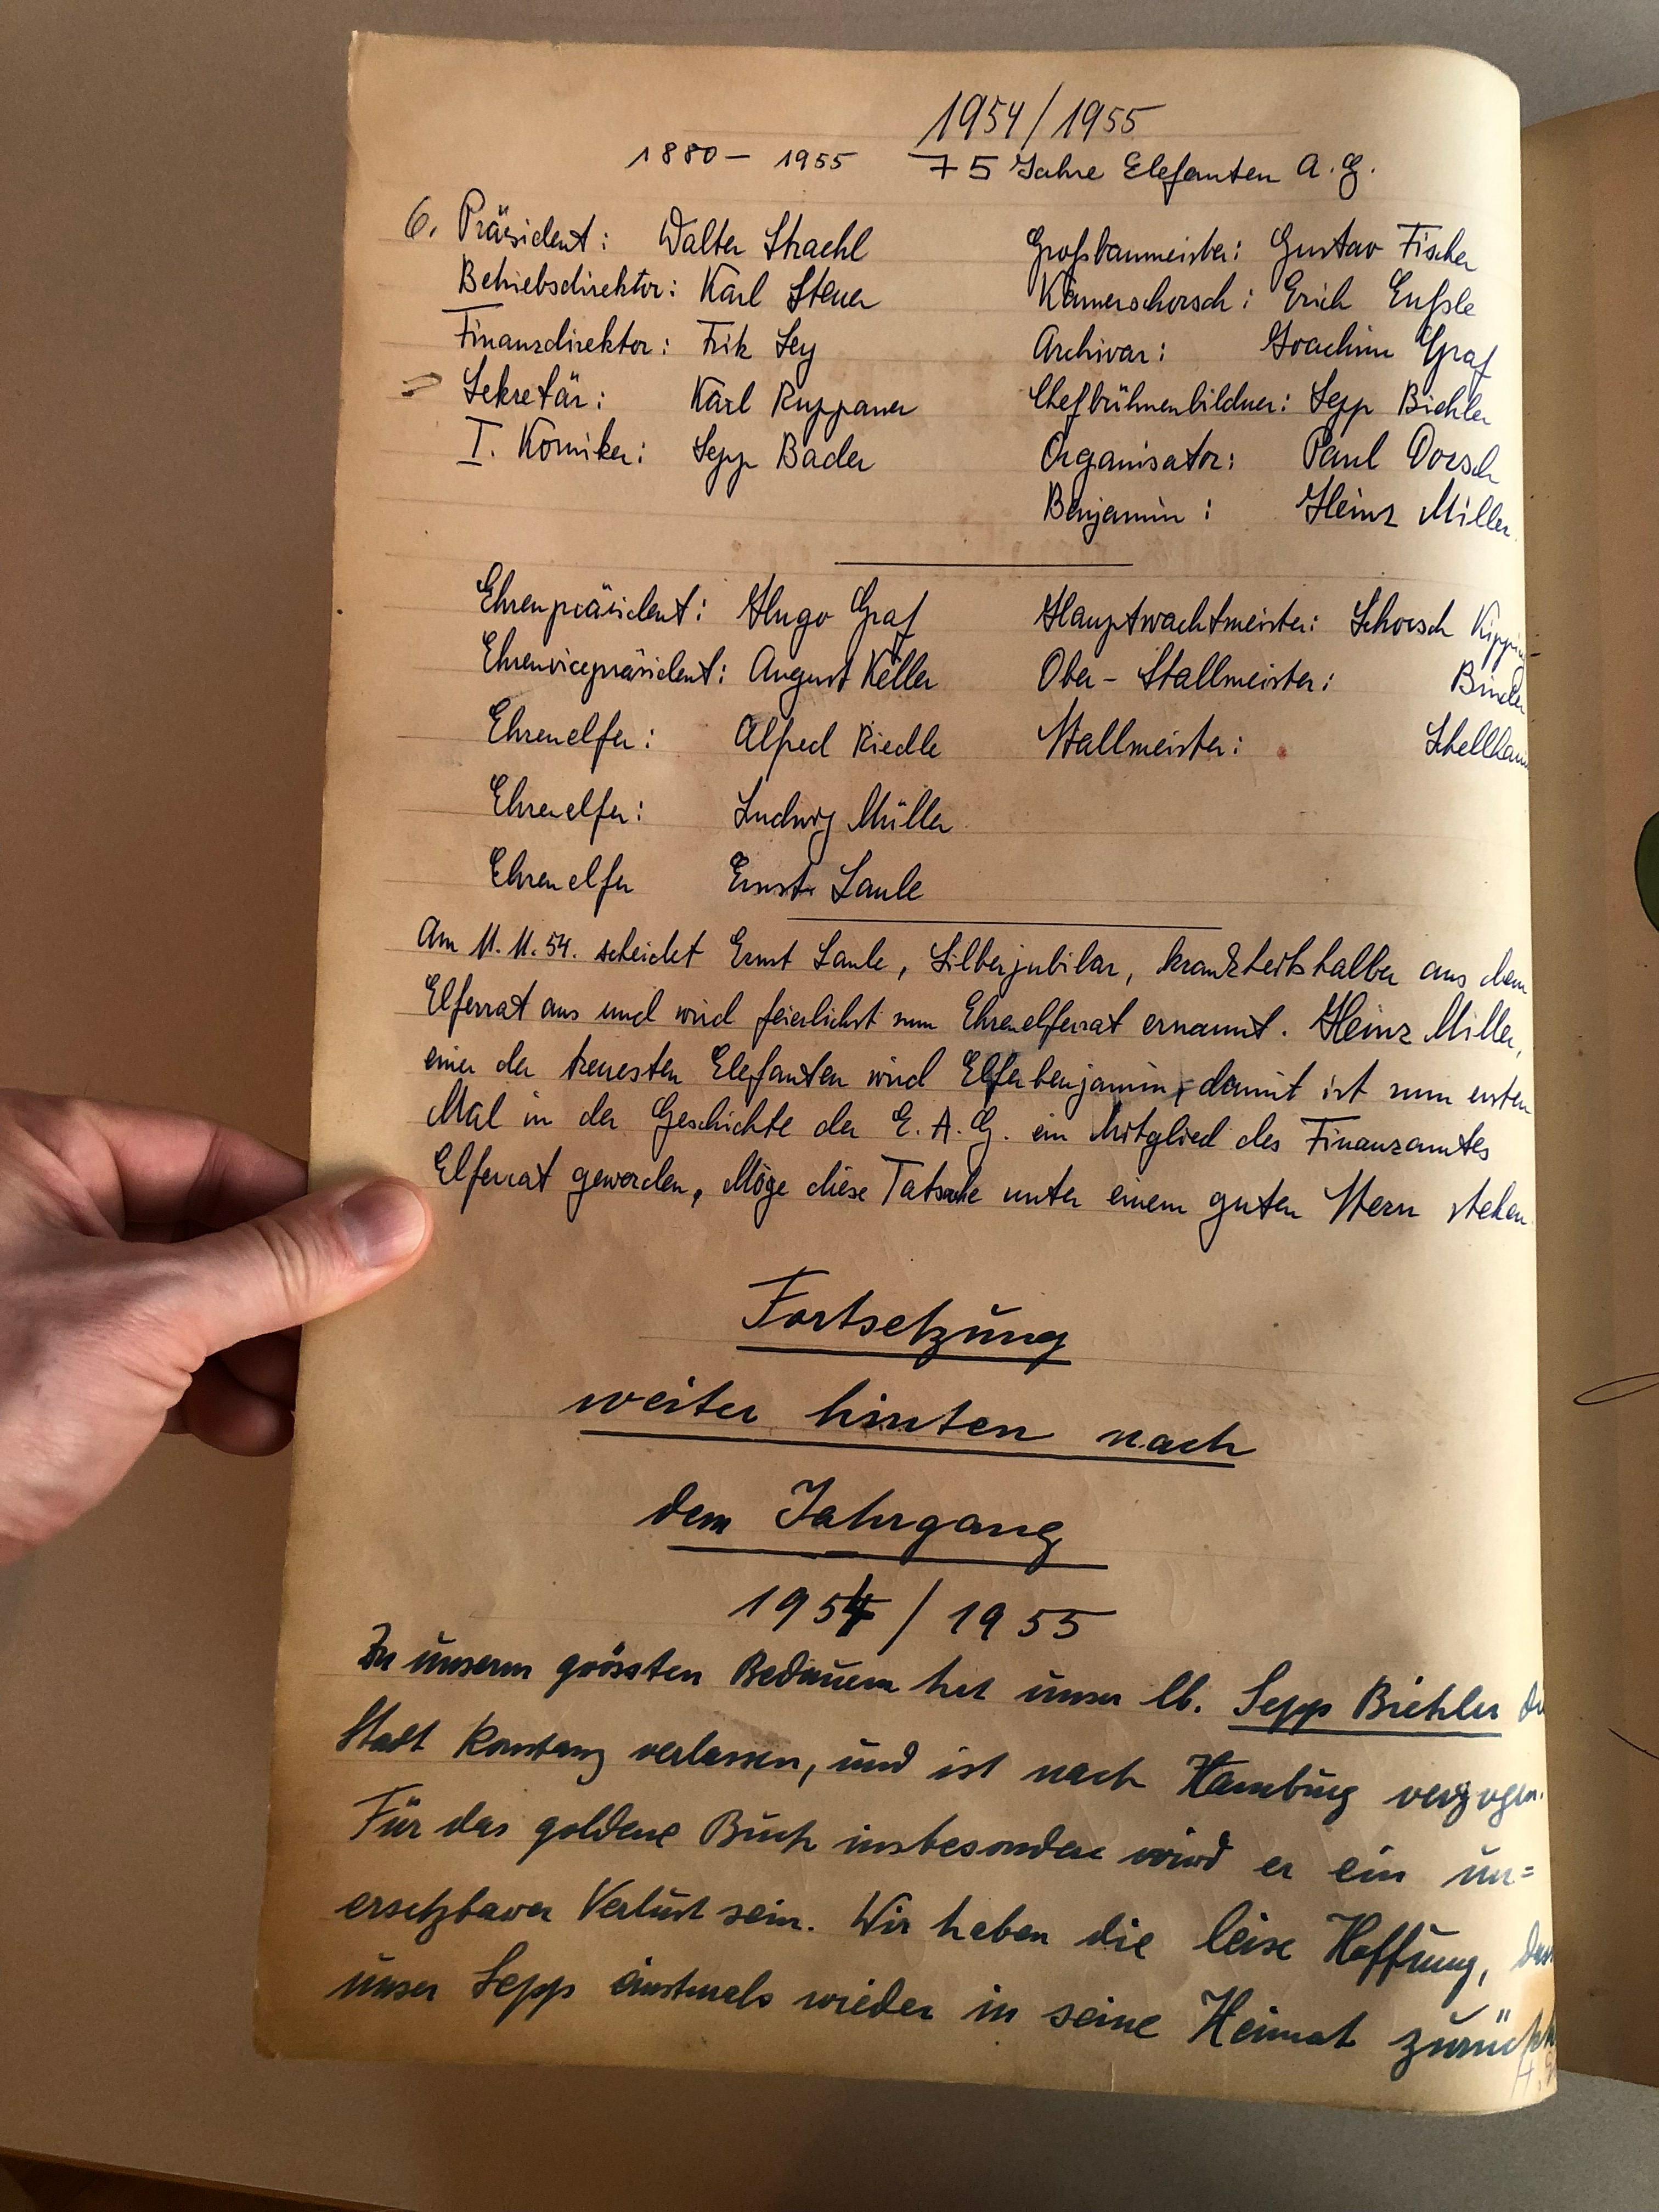 1954/1955
1880 – 1955 75 Jahre Elefanten A.G.
6. Präsident: Walter Straehl Großbaumeister: Gustav Fischer
Betriebsdirektor: Karl Steuer Kamerschorsch: Erich Enßle
Finanzdirektor: Fritz Ley Archivar: Joachim Graf
Sekretär: Karl Ruppaner Chefbühnenbildner: Sepp Biehler
I. Komiker: Sepp Bader Organisator: Paul Dorsch
Benjamin: Heinz Miller
Ehrenpräsident: Hugo Graf Hauptwachtmeister: Schorsch
Ehrenvicepräsident: August Keller Ober-Stallmeister: Binder
Ehrenelfer: Alfred Riedle Stallmeister:
Ehrenelfer: Ludwig Müller
Ehrenelfer Ernst Laule
Am 11.11.54. scheidet Ernst Laule, Silberjubilar, krankheitshalber aus dem
Elferrat aus und wird feierlichst zum Ehrenelferrat ernannt. Heinz Miller,
einer der treuesten Elefanten wird Elferbenjamin, damit ist zum ersten
Mal in der Geschichte der E.A.G. ein Mitglied des Finanzamtes
Elferrat geworden, Möge diese Tatsache unter einem guten Stern stehen
Fortsetzung
weiter hinten nach
dem Jahrgang
1954 / 1955
Zu unserm grössten Bedauern hat unser lb. Sepp Biehler
Stadt Konstanz verlassen, und ist nach Hamburg verzogen.
Für das goldene Buch insbesondere wird er ein un=
ersetzbarer Verlust sein. Wir haben die leise Hoffnung,
unser Sepp einstmals wieder in seine Heimat